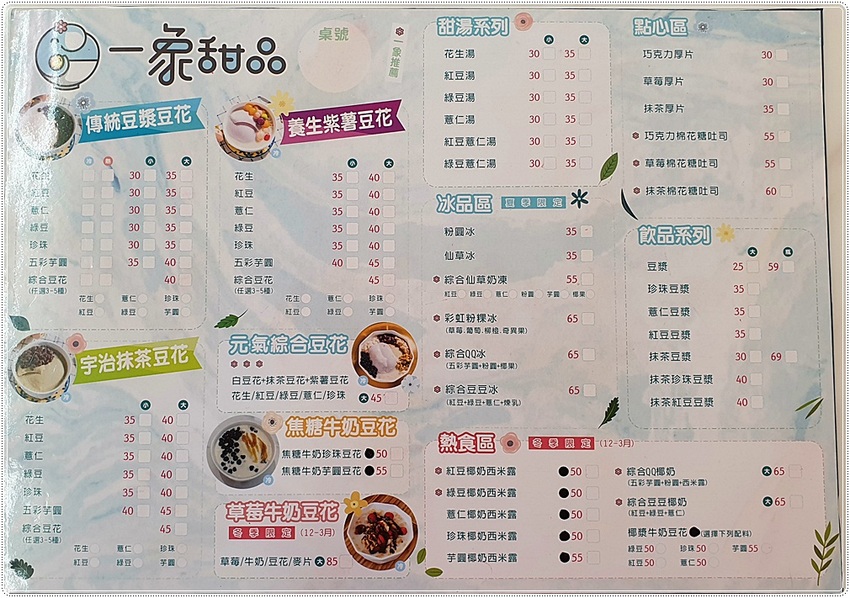 一象甜品
桌號
一象推薦
傳統豆漿豆花
冷 熱 小 大
花生 30 35
紅豆 30 35
薏仁 30 35
綠豆 30 35
珍珠 30 35
五彩芋圓 35 40
綜合豆花 40
(任選3-5種)
花生 薏仁 珍珠
紅豆 綠豆 芋圓
養生紫薯豆花
小 大
花生 35 40
紅豆 35 40
薏仁 35 40
綠豆 35 40
珍珠 35 40
五彩芋圓 40 45
綜合豆花 45
(任選3-5種)
花生 薏仁 珍珠
紅豆 綠豆 芋圓
宇治抹茶豆花
小 大
花生 35 40
紅豆 35 40
薏仁 35 40
綠豆 35 40
珍珠 35 40
五彩芋圓 40 45
綜合豆花 45
(任選3-5種)
花生 薏仁 珍珠
紅豆 綠豆 芋圓
元氣綜合豆花
白豆花+抹茶豆花+紫薯豆花
花生/紅豆/綠豆/薏仁/珍珠 大45
冷
焦糖牛奶豆花
焦糖牛奶珍珠豆花 50
焦糖牛奶芋圓豆花 55
冷
草莓牛奶豆花
冬季限定 (12-3月)
草莓/牛奶/豆花/麥片 大85
冷
甜湯系列
小 大
花生湯 30 35
紅豆湯 30 35
綠豆湯 30 35
薏仁湯 30 35
紅豆薏仁湯 30 35
綠豆薏仁湯 30 35
冰品區 夏季限定
粉圓冰 35
仙草冰 35
綜合仙草奶凍 55
紅豆 綠豆 薏仁 粉圓 芋圓 椰果
彩虹粉粿冰 65
(草莓.葡萄.柳橙.奇異果)
綜合QQ冰 65
(五彩芋圓+粉圓+椰果)
綜合豆豆冰 65
(紅豆+綠豆+薏仁+煉乳)
點心區
巧克力厚片 30
草莓厚片 30
抹茶厚片 35
巧克力棉花糖吐司 55
草莓棉花糖吐司 55
抹茶棉花糖吐司 60
飲品系列
大 瓶
豆漿 25 59
珍珠豆漿 35
薏仁豆漿 35
紅豆豆漿 35
抹茶豆漿 30 69
抹茶珍珠豆漿 40
抹茶紅豆豆漿 40
熱食區 冬季限定 (12-3月)
紅豆椰奶西米露 50
綠豆椰奶西米露 50
薏仁椰奶西米露 50
珍珠椰奶西米露 50
芋圓椰奶西米露 55
綜合QQ椰奶 大65
(五彩芋圓+粉圓+西米露)
綜合豆豆椰奶 大65
(紅豆+綠豆+薏仁)
椰漿牛奶豆花 (選擇下列配料)
綠豆50 珍珠50 芋圓55
紅豆50 薏仁50